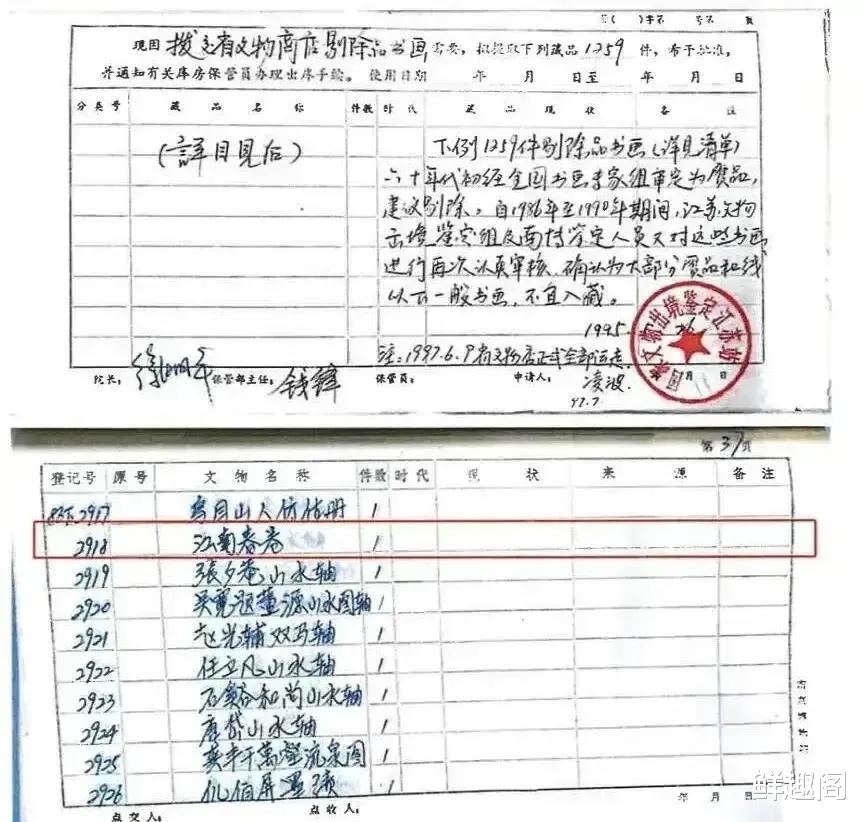 字第 号第 页
现因 拨交省文物商店剔除品书画 需要，拟提取下列藏品1259件，希予批准，
并通知有关库房保管员办理出库手续。使用日期 年 月 日至 年 月 日
分类号 藏品名称 件数 时代 藏品现状 备注
(詳目見后)
下列1259件剔除品书画(详见清单)
六十年代初经全国书画专家组审定为赝品，
建议剔除。自1986年至1990年期间，江苏文物
出境鉴定组及南博鉴定人员又对这些书画
进行再次认真审核，确认为大部分赝品和线
以下一般书画，不宜入藏。
1995
注：1997.6.9省文物店正式全部运走
院长： 徐湖平 保管部主任： 钱锋 保管员： 申请人： 凌波 月 日
97.7.
国家文物出境鉴定江苏站
第37页
登记号 原号 文物名称 件数 时代 现状 来源 备注
2917 乌目山人仿古册 1
2918 江南春卷 1
2919 張夕菴山水轴 1
2920 吴寛题董源山水图轴 1
2921 赵光辅双马轴 1
2922 任立凡山水轴 1
2923 石谿和尚山水轴 1
2924 唐岱山水轴 1
2925 奚丰千萬壑流泉图 1
2926 仇伯屏墨蹟 1
点交人： 点收人： 年 月 日
鲜趣阁